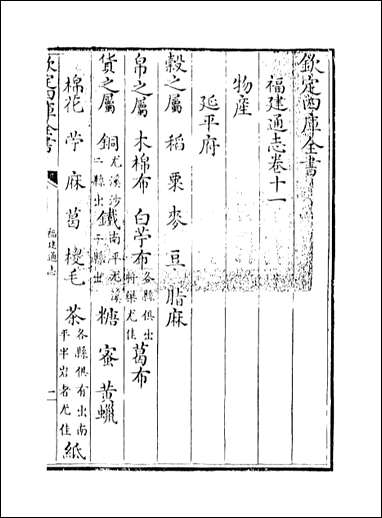 欽定四庫全書
福建通志卷十一
物產
延平府
穀之屬 稻 粟 麥 豆 脂麻
帛之屬 木棉布 白苧布各縣俱出將樂尤佳 葛布
貨之屬 銅尤溪沙二縣出 鐵南平尤溪二縣出 糖 蜜 黃蠟
棉花 苧 麻 葛 椶毛 茶各縣俱有出南平半岩者尤佳 紙
欽定四庫全書
福建通志